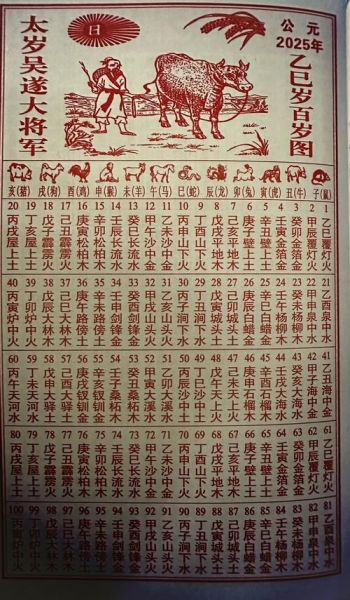 公元
2025年
乙巳岁百岁图
日
太岁吴遂大将军
子(鼠)
丑(牛)
寅(虎)
卯(兔)
辰(龙)
巳(蛇)
午(马)
未(羊)
申(猴)
酉(鸡)
戌(狗)
亥(猪)
1 乙巳覆灯火
2 甲辰覆灯火
3 癸卯金箔金
4 壬寅金箔金
5 辛丑壁上土
6 庚子壁上土
7 己亥平地木
8 戊戌平地木
9 丁酉山下火
10 丙申山下火
11 乙未沙中金
12 甲午沙中金
13 癸巳长流水
14 壬辰长流水
15 辛卯松柏木
16 庚寅松柏木
17 己丑霹雳火
18 戊子霹雳火
19 丁亥屋上土
20 丙戌屋上土
21 乙酉泉中水
22 甲申泉中水
23 癸未杨柳木
24 壬午杨柳木
25 辛巳白蜡金
26 庚辰白蜡金
27 己卯城头土
28 戊寅城头土
29 丁丑涧下水
30 丙子涧下水
31 乙亥山头火
32 甲戌山头火
33 癸酉剑锋金
34 壬申剑锋金
35 辛未路傍土
36 庚午路傍土
37 己巳大林木
38 戊辰大林木
39 丁卯炉中火
40 丙寅炉中火
41 乙丑海中金
42 甲子海中金
43 癸亥大海水
44 壬戌大海水
45 辛酉石榴木
46 庚申石榴木
47 己未天上火
48 戊午天上火
49 丁巳沙中土
50 丙辰沙中土
51 乙卯大溪水
52 甲寅大溪水
53 癸丑桑柘木
54 壬子桑柘木
55 辛亥钗钏金
56 庚戌钗钏金
57 己酉大驿土
58 戊申大驿土
59 丁未天河水
60 丙午天河水
61 乙巳覆灯火
62 甲辰覆灯火
63 癸卯金箔金
64 壬寅金箔金
65 辛丑壁上土
66 庚子壁上土
67 己亥平地木
68 戊戌平地木
69 丁酉山下火
70 丙申山下火
71 乙未沙中金
72 甲午沙中金
73 癸巳长流水
74 壬辰长流水
75 辛卯松柏木
76 庚寅松柏木
77 己丑霹雳火
78 戊子霹雳火
79 丁亥屋上土
80 丙戌屋上土
81 乙酉泉中水
82 甲申泉中水
83 癸未杨柳木
84 壬午杨柳木
85 辛巳白蜡金
86 庚辰白蜡金
87 己卯城头土
88 戊寅城头土
89 丁丑涧下水
90 丙子涧下水
91 乙亥山头火
92 甲戌山头火
93 癸酉剑锋金
94 壬申剑锋金
95 辛未路傍土
96 庚午路傍土
97 己巳大林木
98 戊辰大林木
99 丁卯炉中火
100 丙寅炉中火